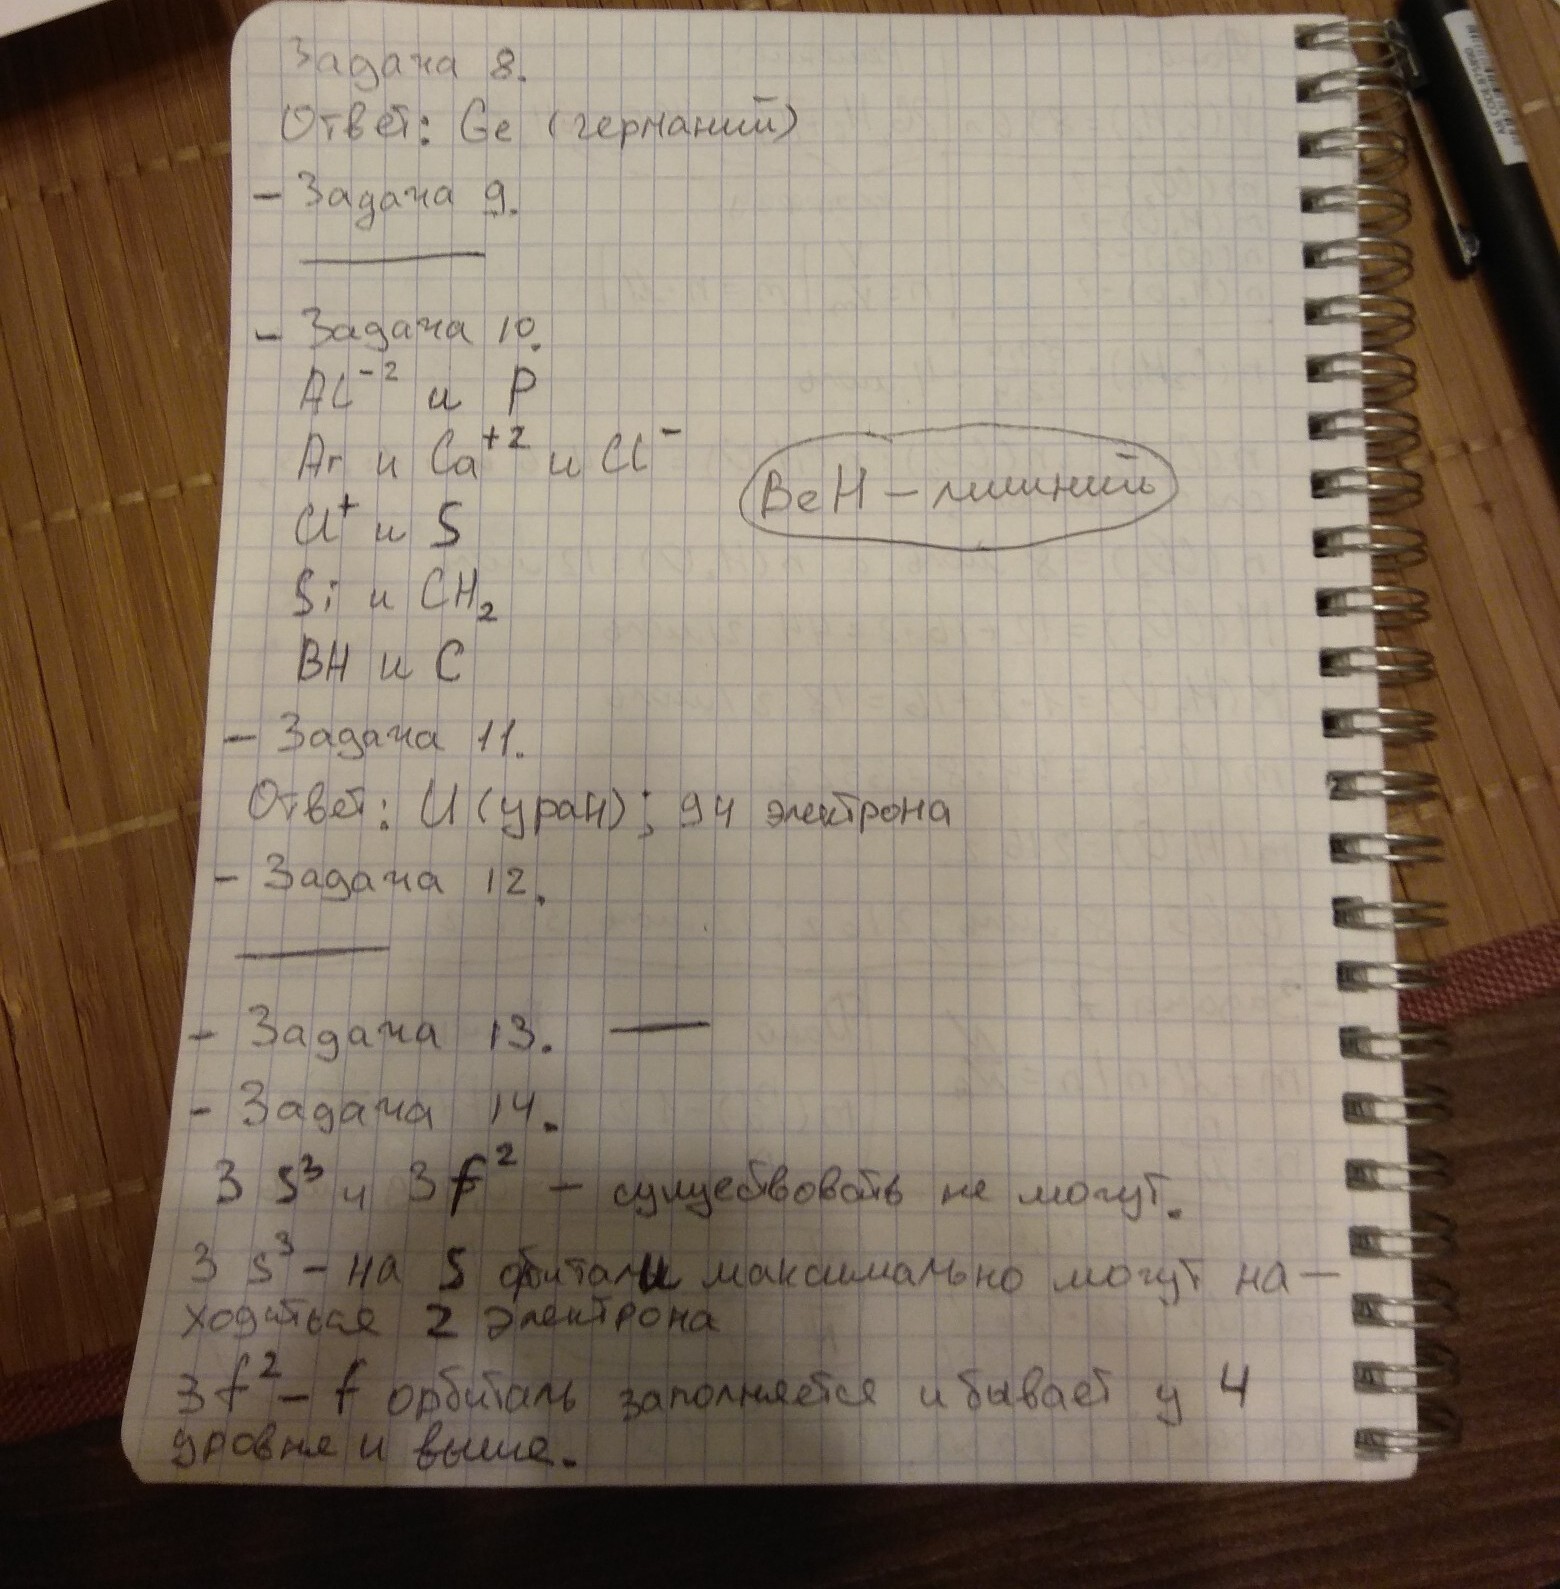 Задача 8.
Ответ: Ge (германий)
- Задача 9.
- Задача 10.
Al⁻² и P
Ar и Ca⁺² и Cl⁻
BeH - лишний
Cl⁺ и S
Si и CH₂
BH и C
- Задача 11.
Ответ: U (уран); 94 электрона
- Задача 12.
- Задача 13. —
- Задача 14.
3 s³ и 3f² - существовать не могут.
3 s³ - на s орбитали максимально могут на-
ходиться 2 электрона
3f² - f орбиталь заполняется и бывает у 4
уровня и выше.